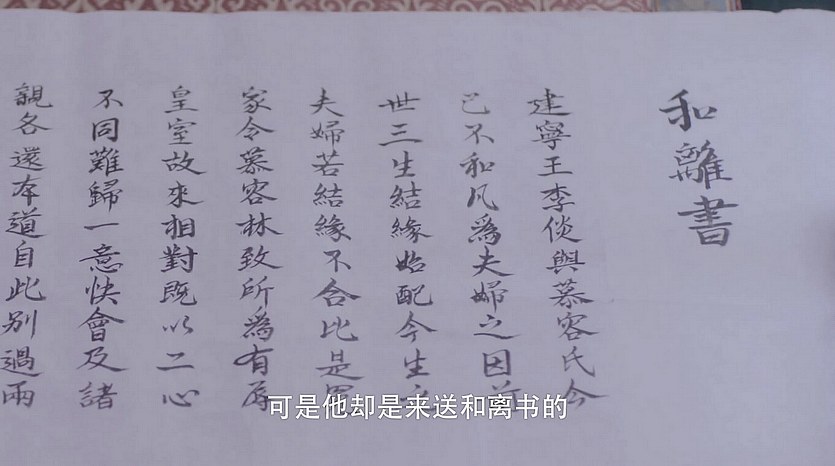 和離書
建寧王李倓與慕容氏今
已不和凡爲夫婦之因前
世三生結緣始配今生之
夫婦若結緣不合比是
家令慕容林致所爲有辱
皇室故來相對既以二心
不同難歸一意快會及諸
親各還本道自此別過兩
可是他却是来送和离书的